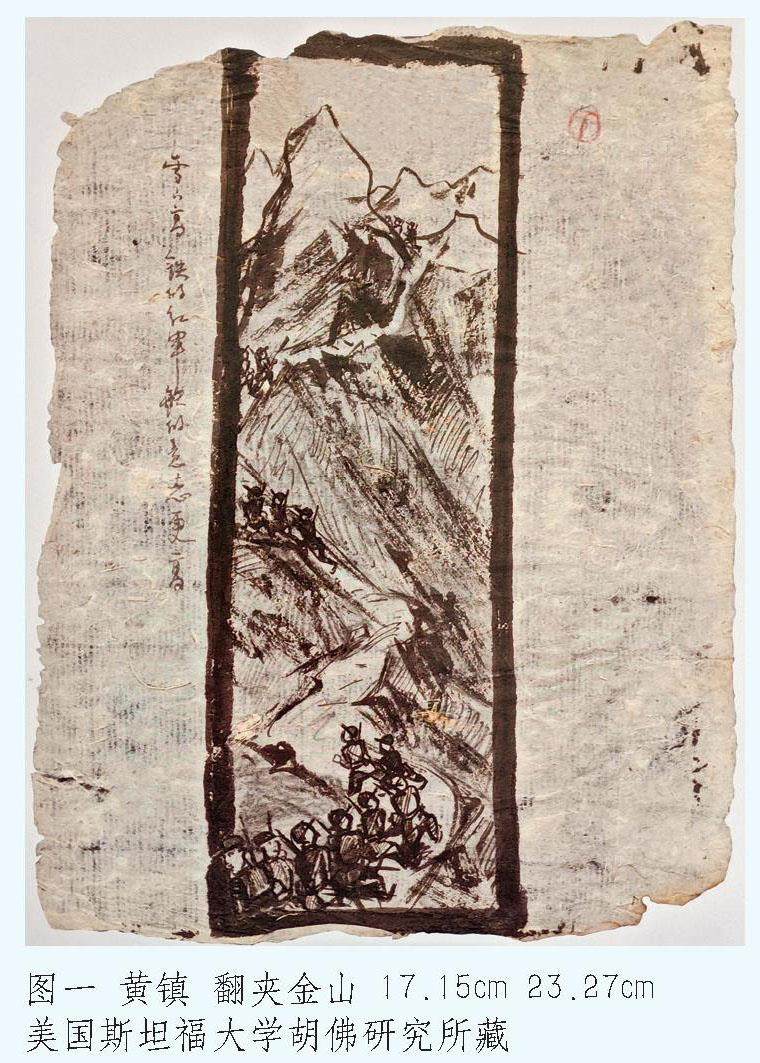 雪山高铁的红军铁的意志更高
图一 黄镇 翻夹金山 17.15cm 23.27cm
美国斯坦福大学胡佛研究所藏